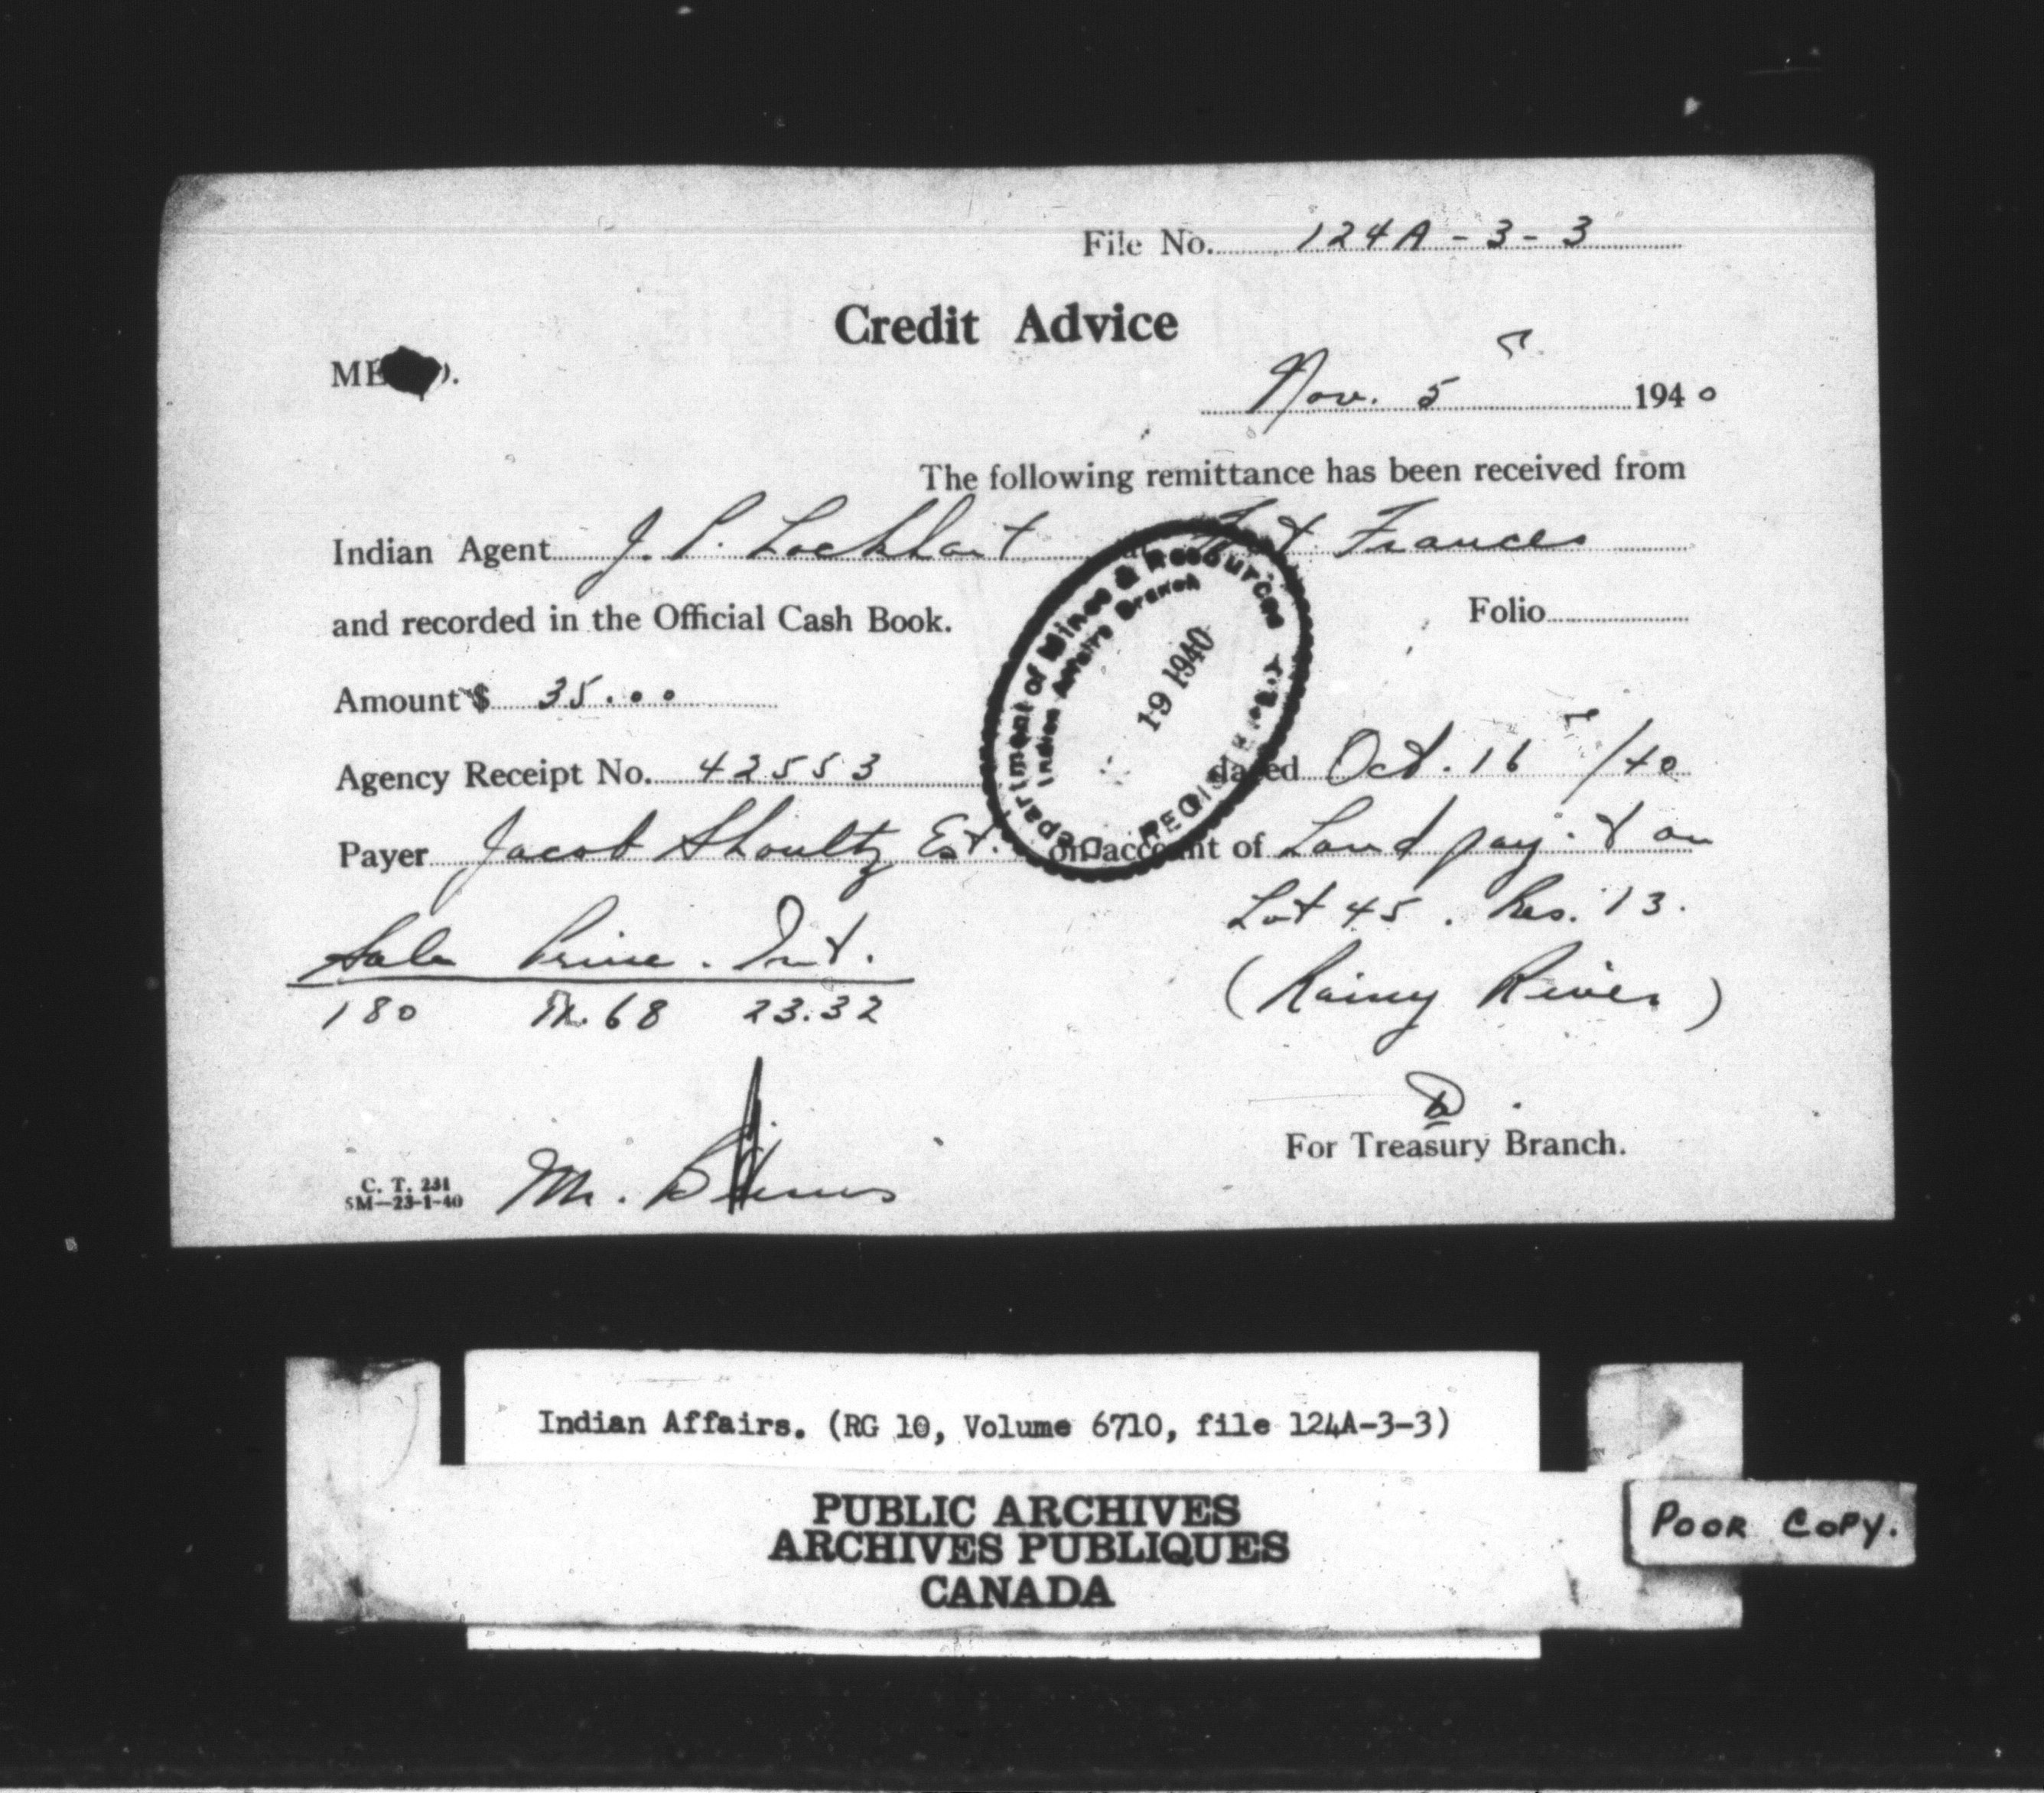 File No. 124A-3-3
Credit Advice
Nov. 5 1940
The following remittance has been received from
Indian Agent J. P. Lockhart at Fort Frances
and recorded in the Official Cash Book. Folio
Amount $ 35.00
Agency Receipt No. 42553 dated Oct. 16/40
Payer Jacob Shoultz Est. on account of Land pay't on
Lot 45. Res. 13.
Sale Prine. Int.
(Rainy River)
180 11.68 23.32
Department of Mines & Resources
Indian Affairs Branch
19 1940
REGISTERED
For Treasury Branch.
C. T. 231
5M—23-1-40
M.
Indian Affairs. (RG 10, Volume 6710, file 124A-3-3)
PUBLIC ARCHIVES
ARCHIVES PUBLIQUES
CANADA
POOR COPY.